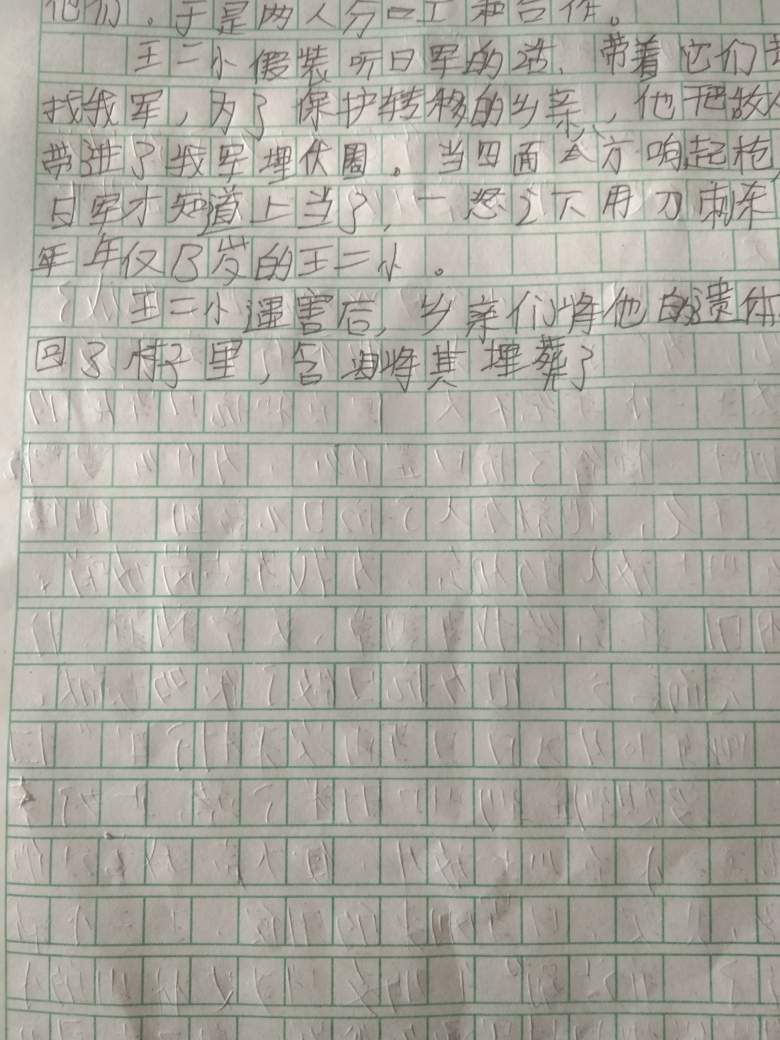 他们。于是两人分工和合作。
王二小假装听日军的话、带着它们
找我军，为了保护转移的乡亲，他把
带进了我军埋伏圈。当四面八方响起枪
日军才知道上当了，一怒之下用刀刺杀
年年仅13岁的王二小。
王二小遇害后，乡亲们将他的遗体
回了村子里，含泪将其埋葬了